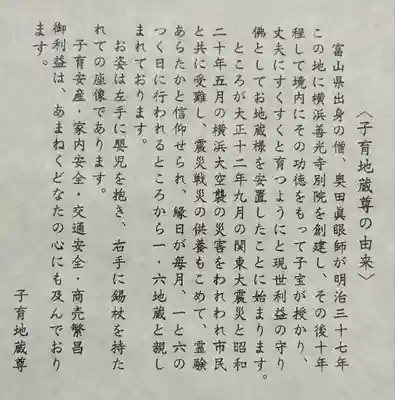 〈子育地蔵尊の由来〉
富山県出身の僧、奥田眞眼師が明治三十七年
この地に横浜善光寺別院を創建し、その後十年
程して境内にその功徳をもって子宝が授かり、
丈夫にすくすくと育つようにと現世利益の守り
佛としてお地蔵様を安置したことに始まります。
ところが大正十二年九月の関東大震災と昭和
二十年五月の横浜大空襲の災害をわれわれ市民
と共に受難し、震災戦災の供養もこめて、霊験
あらたかと信仰せられ、縁日が毎月、一と六の
つく日に行われるところから一・六地蔵と親し
まれております。
お姿は左手に嬰児を抱き、右手に錫杖を持た
れての座像であります。
子育安産・家内安全・交通安全・商売繁昌
御利益は、あまねくどなたの心にも及んでおり
ます。
子育地蔵尊